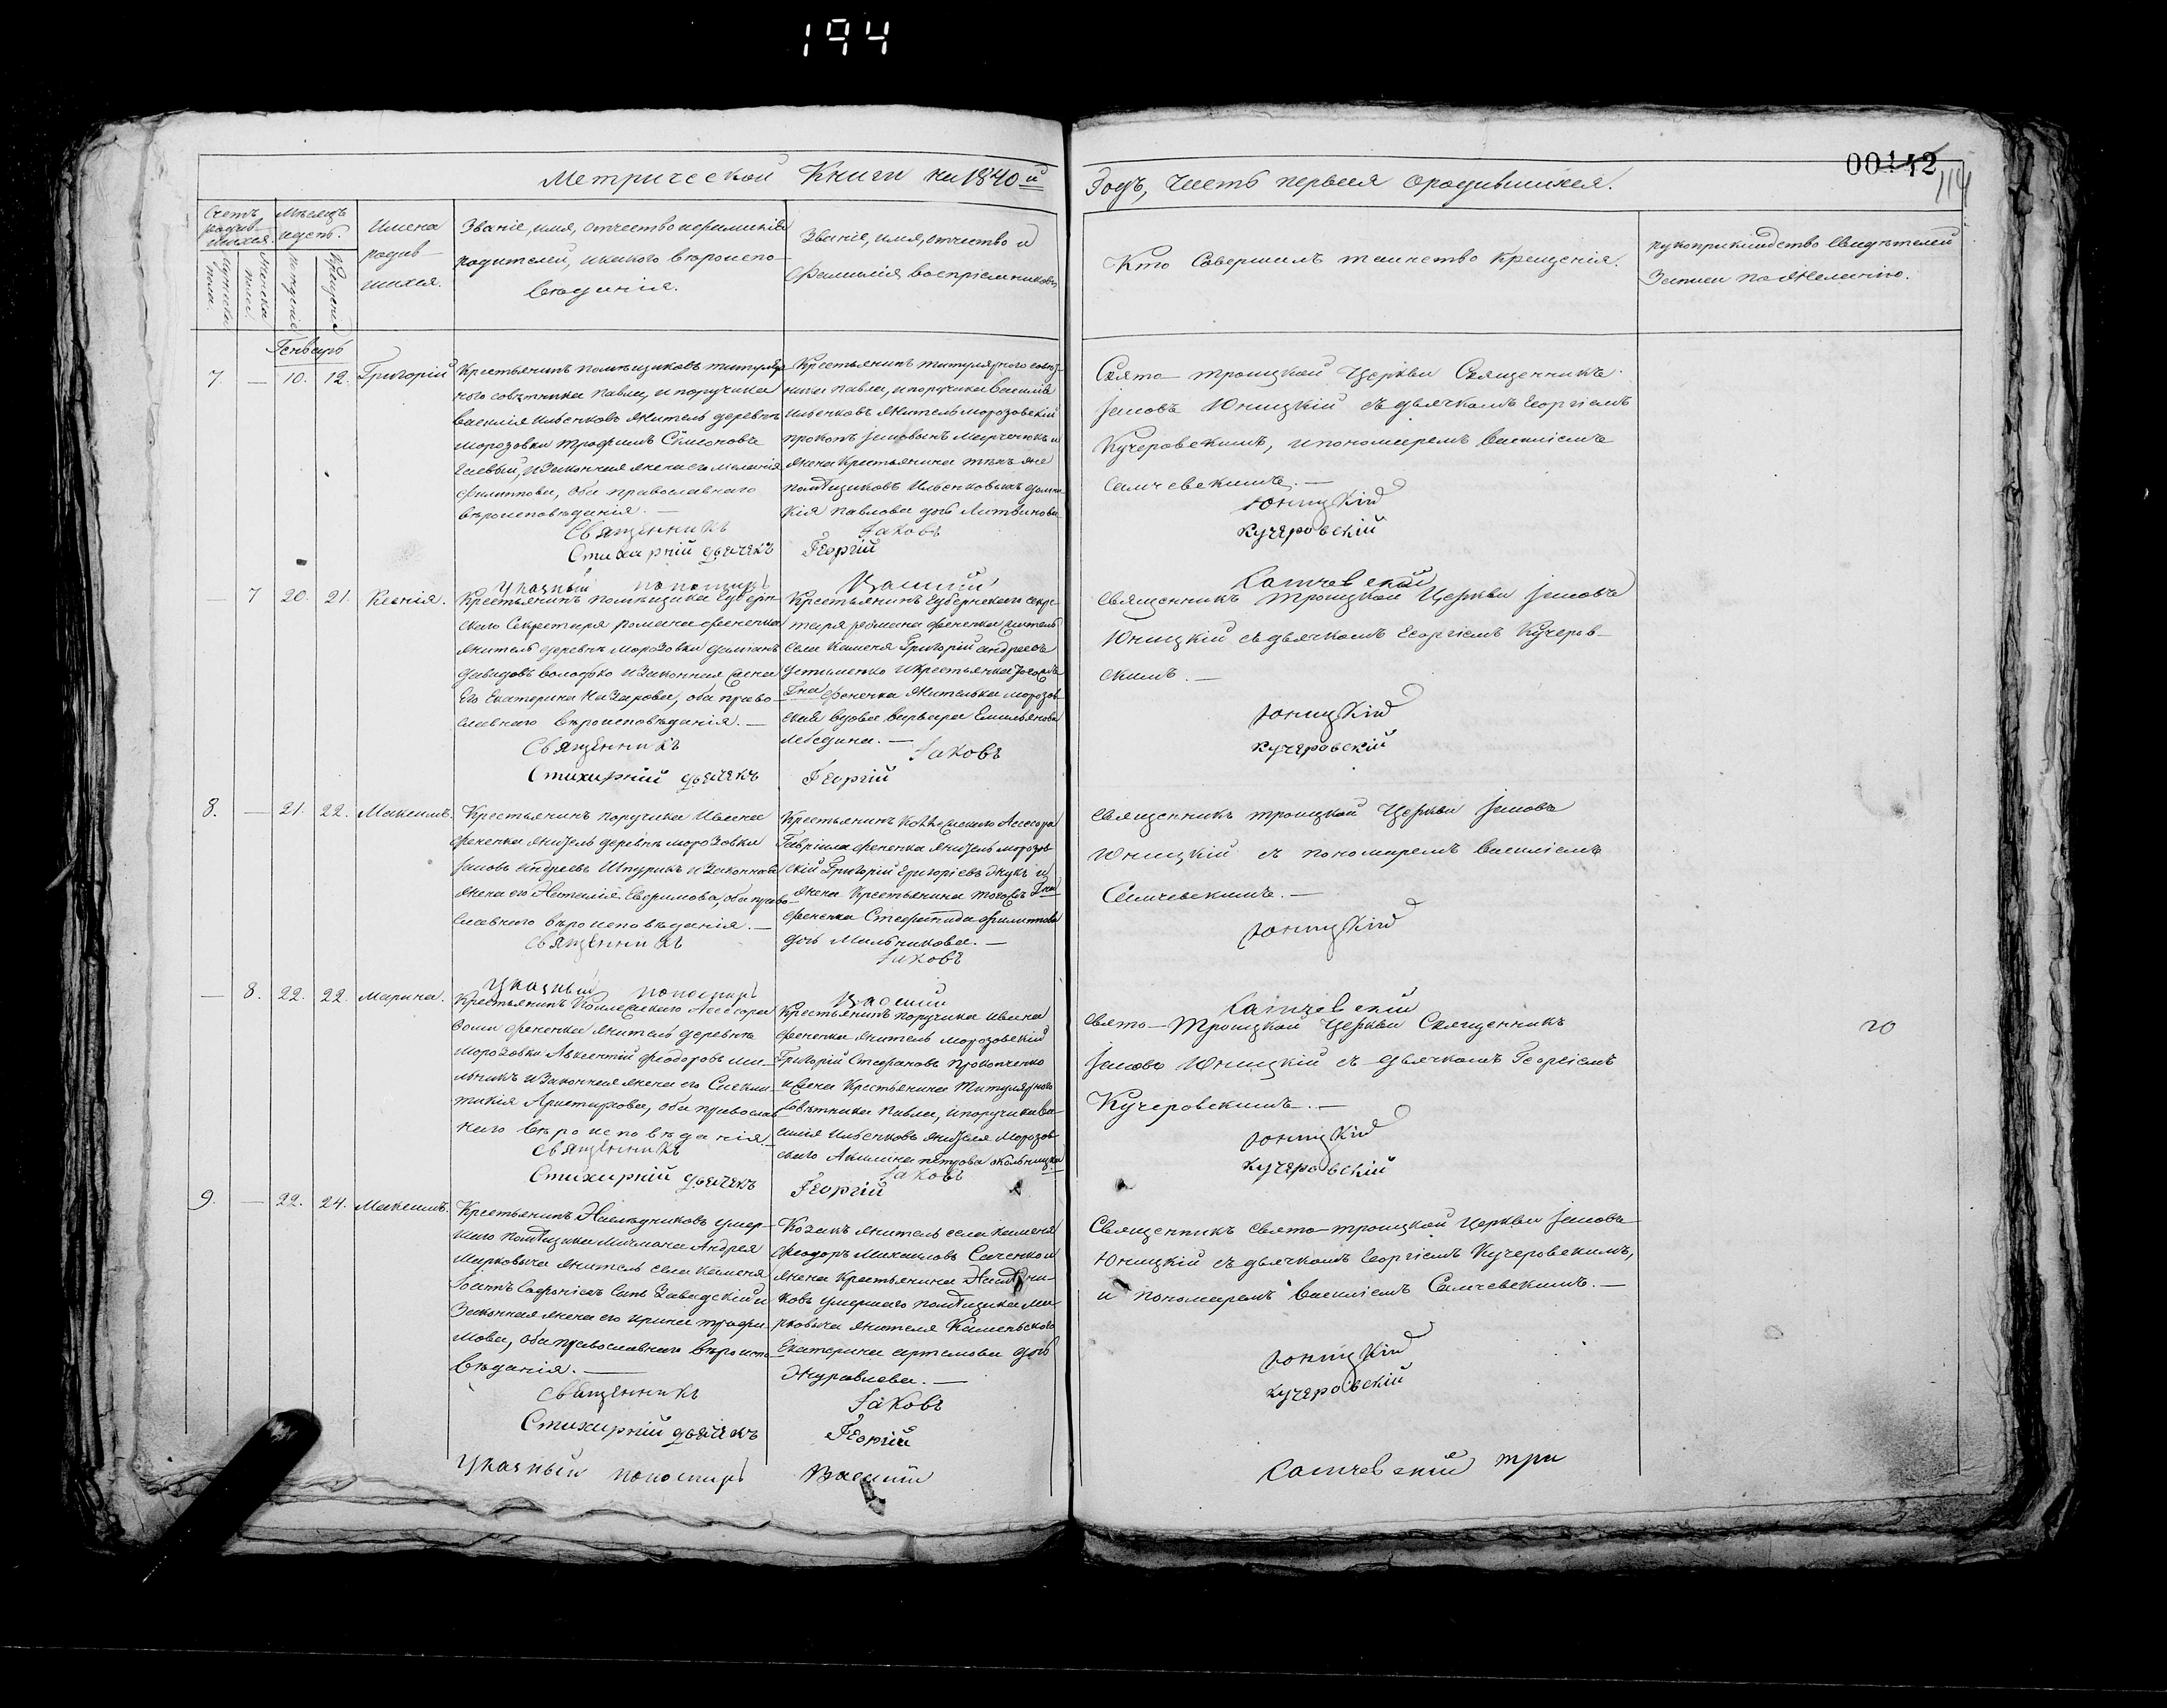 194
00142
114
Метрической Книги на 1840й
Годъ, Часть первая о родившихся.
Счетъ родив-шихся.
Мужеска пола.
Женска пола.
Мѣсяцъ и день.
рожденія
крещенія
Имена родив-шихся.
Званіе, имя, отчество и фамилія
родителей, и какого вѣроиспо-
вѣданія.
Званіе, имя, отчество и
фамилія воспріемниковъ
Кто совершалъ таинство крещенія.
рукоприкладство свидѣтелей
записи по желанію.
Генварь
7. — 10. 12. Григорій
Крестьянинъ помѣщиковъ титуляр-
ного совѣтника павла, и поручика
василія ильенково житель деревнѣ
морозовки трофимъ Симонова
и законная жена его меланія
филиппова, оба православнаго
вѣроисповѣданія. —
Священникъ
Стихирній дьячекъ
Указный пономарь
Крестьянинъ титулярного совѣт-
ника павла, и поручика василія
ильенковъ житель морозовскій
прокопъ
жена крестьянина тѣхъ же
помѣщиковъ ильенковыхъ
кія павлова дочь Литвинова
Іаковъ
Георгій
Василій
Свято-троицкой Церкви Священникъ
Іаковъ Юницкій съ дьячкомъ Георгіемъ
Кучеровскимъ, и пономаремъ василіемъ
Самчевскимъ. —
Юницкій
Кучеровскій
Самчевский
— 7 20. 21. Ксенія.
Крестьянинъ помѣщика Губерн-
скаго Секретаря романа фененка
житель деревнѣ морозовки даміанъ
давидовъ и законная жена
Его Екатерина Назарова, оба право-
славнаго вѣроисповѣданія. —
Священникъ
Стихирній дьячекъ
Крестьянинъ Губернскаго секре-
таря романа фененка житель
села Каменя Григорій андреевъ
Устименко и крестьянка тогожъ
Гна фененка жителька морозов-
ская вдова варвара Емильянова
лебедина. —
Іаковъ
Георгій
Священникъ троицкой Церкви Іаковъ
Юницкій съ дьячкомъ Георгіемъ Кучеров-
скимъ. —
Юницкій
Кучеровскій
8. — 21. 22. Максимъ.
Крестьянинъ поручика Ивана
фененка житель деревнѣ морозовки
Іаковъ андреевъ и законная
жена его Наталія Евфимова, оба право-
славнаго вѣроисповѣданія. —
Священникъ
Указный пономарь
Крестьянинъ Коллежскаго Асесора
Гавріила фененка житель морозов-
скій Григорій Григоріевъ Жукъ и
жена крестьянина тогожъ Гна
фененка Стефанида филиппова
дочь Мильникова. —
Іаковъ
Василій
Священникъ троицкой Церкви Іаковъ
Юницкій съ пономаремъ василіемъ
Самчевскимъ. —
Юницкій
Самчевский
— 8. 22. 22. Марина.
Крестьянинъ Коллежскаго Асесора
фененка житель деревнѣ
морозовки Авксентій феодоровъ ми-
льникъ и законная жена его Синкли-
тикія Аристархова, оба православ-
наго вѣроисповѣданія. —
Священникъ
Стихирній дьячекъ
Крестьянинъ поручика ивана
фененка житель морозовскій
Григорій Стефановъ прокопенко
и жена крестьянина титулярного
совѣтника павла, и поручика ва-
силія ильенковъ жителя морозов-
скаго Акилина петрова
Іаковъ
Георгій
Свято-Троицкой Церкви Священникъ
Іаковъ Юницкій съ дьячкомъ Георгіемъ
Кучеровскимъ. —
Юницкій
Кучеровскій
20
9. — 22. 24. Максимъ.
Крестьянинъ Наслѣдниковъ умер-
шаго помѣщика мичмана Андрея
Марковича житель села каменя
Софроніевъ сынъ Завадскій и
законная жена его ирина трофи-
мова, оба православнаго вѣроиспо-
вѣданія. —
Священникъ
Стихирній дьячекъ
Указный пономарь
Козакъ житель села каменя
феодоръ михаиловъ Саченко и
жена крестьянина Наслѣдни-
ковъ умершаго помѣщика ма-
рковича жителя Каменьского
Екатерина артемова дочь
Журавлева. —
Іаковъ
Георгій
Василій
Священникъ свято-троицкой церкви Іаковъ
Юницкій съ дьячкомъ Георгіемъ Кучеровскимъ,
и пономаремъ василіемъ Самчевскимъ. —
Юницкій
Кучеровскій
Самчевский
три